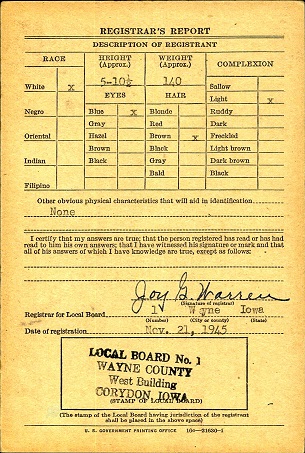 REGISTRAR'S REPORT
DESCRIPTION OF REGISTRANT
RACE HEIGHT (Approx.) WEIGHT (Approx.) COMPLEXION
5-10½ 140 Sallow
White x EYES HAIR Light x
Negro Blue x Blonde Ruddy
Gray Red Dark
Oriental Hazel Brown x Freckled
Brown Black Light brown
Indian Black Gray Dark brown
Bald Black
Filipino
Other obvious physical characteristics that will aid in identification
None
I certify that my answers are true; that the person registered has read or has had
read to him his own answers; that I have witnessed his signature or mark and that
all of his answers of which I have knowledge are true, except as follows:
Joy G. Warren
(Signature of registrar)
Registrar for Local Board 1 Wayne Iowa
(Number) (City or county) (State)
Date of registration Nov. 21, 1945
LOCAL BOARD No. 1
WAYNE COUNTY
West Building
CORYDON, IOWA
(STAMP OF LOCAL BOARD)
(The stamp of the Local Board having jurisdiction of the registrant
shall be placed in the above space)
U. S. GOVERNMENT PRINTING OFFICE 16—21630-1